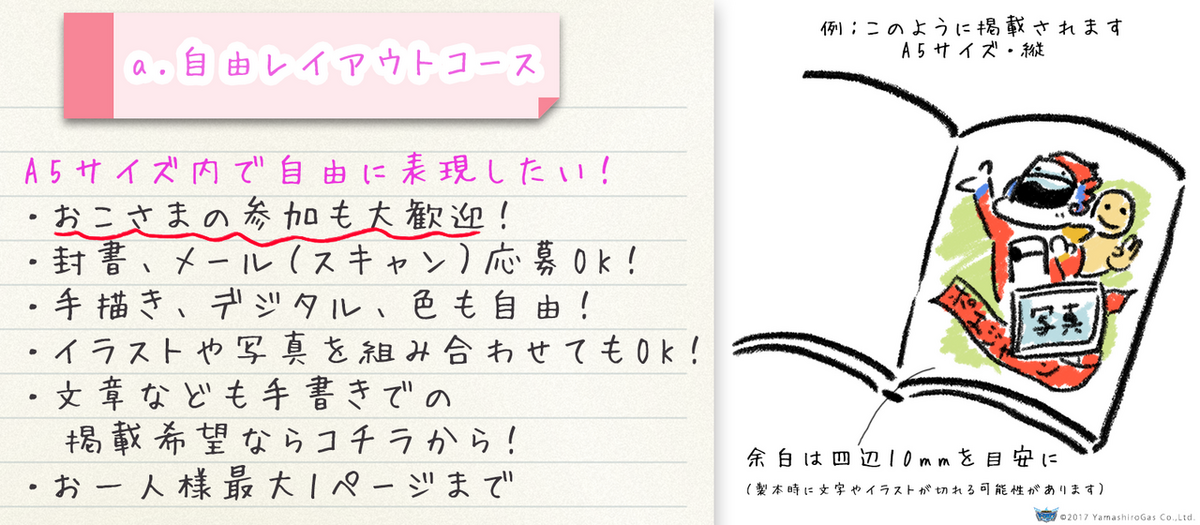 a.自由レイアウトコース
A5サイズ内で自由に表現したい！
・おこさまの参加も大歓迎！
・封書、メール(スキャン)応募OK！
・手描き、デジタル、色も自由！
・イラストや写真を組み合わせてもOK！
・文章なども手書きでの
掲載希望ならコチラから！
・お一人様最大1ページまで
例；このように掲載されます
A5サイズ・縦
写真
余白は四辺10mmを目安に
(製本時に文字やイラストが切れる可能性があります)
©2017 YamashiroGas Co.,Ltd.